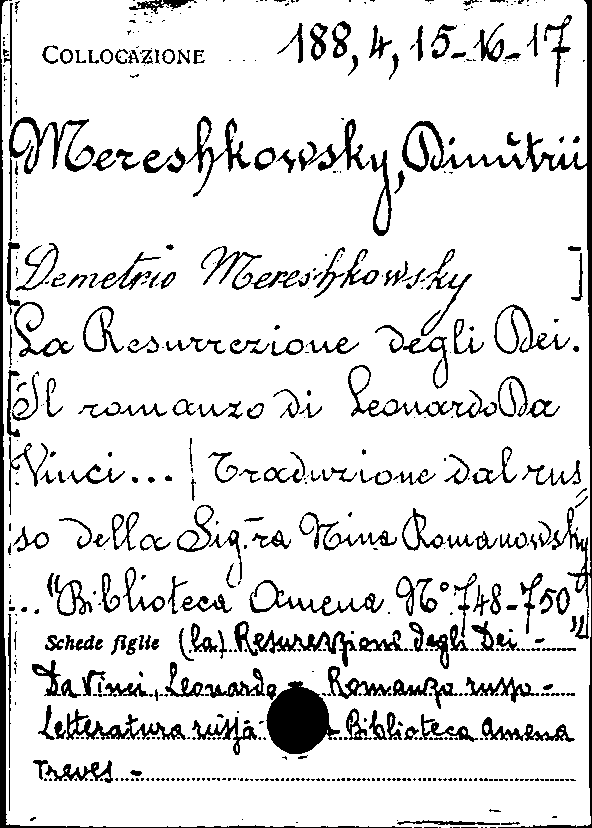 COLLOCAZIONE 188, 4, 15-16-17
Mereshkowsky, Dimitrii
[Demetrio Mereshkowsky]
La Resurrezione degli Dei.
[Il romanzo di Leonardo Da
Vinci... | Traduzione dal rus=
so della Sig.ra Nina Romanowsky
... "Biblioteca Amena N° 748-750"]
Schede figlie (La) Resurrezione degli Dei -
Da Vinci, Leonardo - Romanzo russo -
Letteratura russa - Biblioteca amena
Treves -